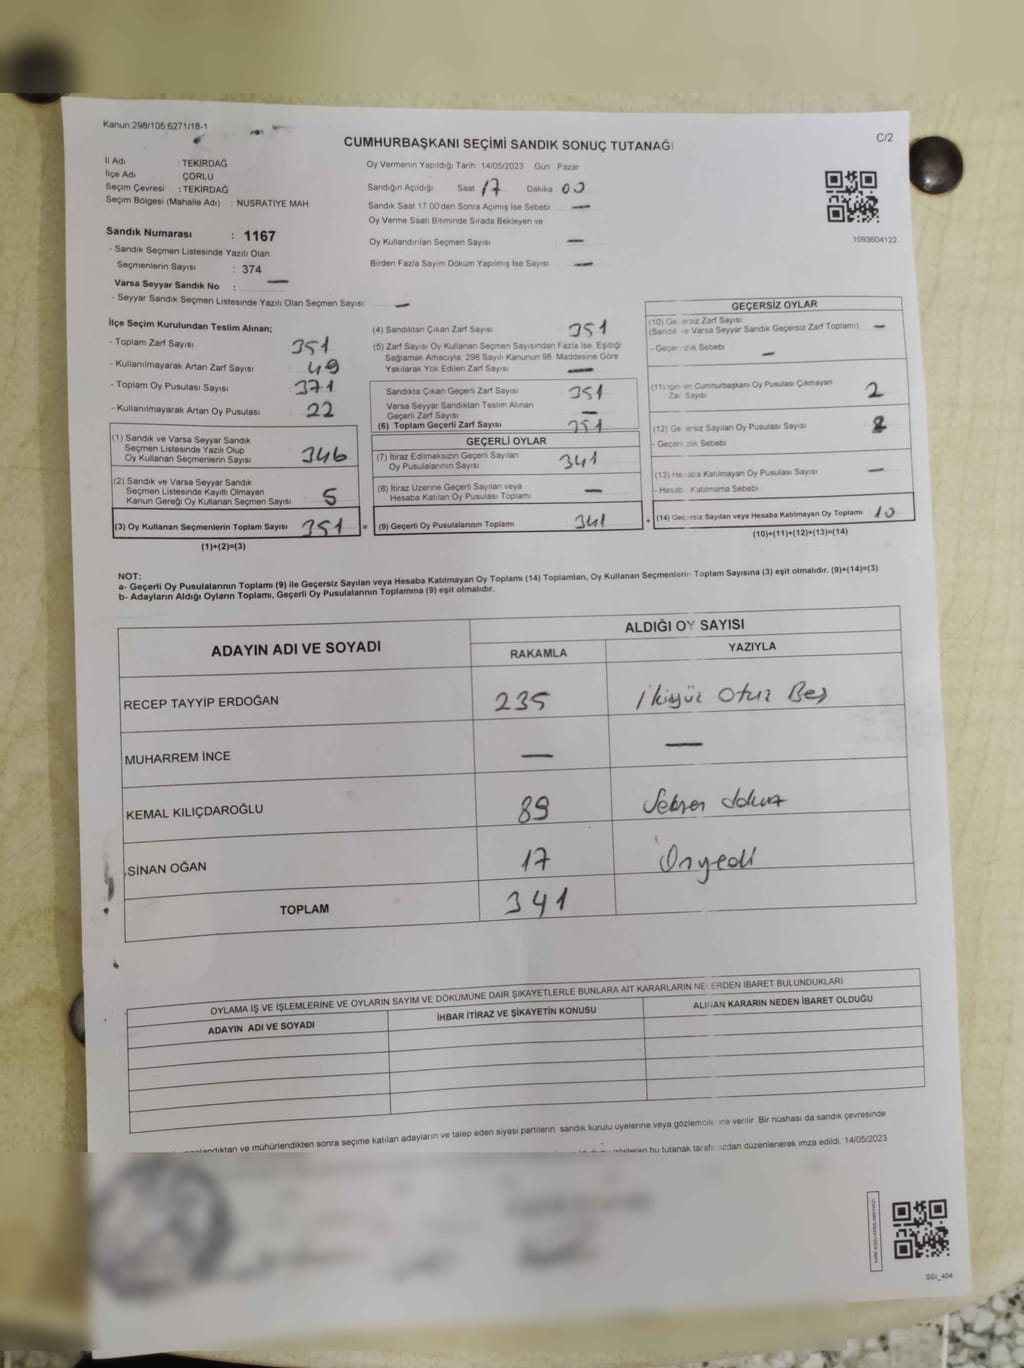 Kanun:298/105;6271/18-1
C/2
CUMHURBAŞKANI SEÇİMİ SANDIK SONUÇ TUTANAĞI
İl Adı : TEKİRDAĞ
İlçe Adı : ÇORLU
Seçim Çevresi : TEKİRDAĞ
Seçim Bölgesi (Mahalle Adı) : NUSRATİYE MAH.
Sandık Numarası : 1167
- Sandık Seçmen Listesinde Yazılı Olan
Seçmenlerin Sayısı : 374
Varsa Seyyar Sandık No : —
- Seyyar Sandık Seçmen Listesinde Yazılı Olan Seçmen Sayısı —
Oy Vermenin Yapıldığı Tarih : 14/05/2023 Gün : Pazar
Sandığın Açıldığı Saat 17 Dakika 00
Sandık Saat 17:00'den Sonra Açımış İse Sebebi —
Oy Verme Saati Bitiminde Sırada Bekleyen ve
Oy Kullandırılan Seçmen Sayısı —
Birden Fazla Sayım Döküm Yapılmış İse Sayısı —
1093604122
İlçe Seçim Kurulundan Teslim Alınan;
- Toplam Zarf Sayısı 351
- Kullanılmayarak Artan Zarf Sayısı 49
- Toplam Oy Pusulası Sayısı 371
- Kullanılmayarak Artan Oy Pusulası 22
(1) Sandık ve Varsa Seyyar Sandık
Seçmen Listesinde Yazılı Olup
Oy Kullanan Seçmenlerin Sayısı 346
(2) Sandık ve Varsa Seyyar Sandık
Seçmen Listesinde Kayıtlı Olmayan
Kanun Gereği Oy Kullanan Seçmen Sayısı 5
(3) Oy Kullanan Seçmenlerin Toplam Sayısı 351 =
(1)+(2)=(3)
(4) Sandıktan Çıkan Zarf Sayısı 351
(5) Zarf Sayısı Oy Kullanan Seçmen Sayısından Fazla İse, Eşitliği
Sağlamak Amacıyla, 298 Sayılı Kanunun 98. Maddesine Göre
Yakılarak Yok Edilen Zarf Sayısı —
Sandıkta Çıkan Geçerli Zarf Sayısı 351
Varsa Seyyar Sandıktan Teslim Alınan
Geçerli Zarf Sayısı —
(6) Toplam Geçerli Zarf Sayısı 351
GEÇERLİ OYLAR
(7) İtiraz Edilmeksizin Geçerli Sayılan
Oy Pusulalarının Sayısı 341
(8) İtiraz Üzerine Geçerli Sayılan veya
Hesaba Katılan Oy Pusulası Toplamı —
(9) Geçerli Oy Pusulalarının Toplamı 341 +
GEÇERSİZ OYLAR
(10) Geçersiz Zarf Sayısı
(Sandık ve Varsa Seyyar Sandık Geçersiz Zarf Toplamı) —
- Geçersizlik Sebebi —
(11) İçinden Cumhurbaşkanı Oy Pusulası Çıkmayan
Zarf Sayısı 2
(12) Geçersiz Sayılan Oy Pusulası Sayısı 8
- Geçersizlik Sebebi
(13) Hesaba Katılmayan Oy Pusulası Sayısı —
- Hesaba Katılmama Sebebi
(14) Geçersiz Sayılan veya Hesaba Katılmayan Oy Toplamı 10
(10)+(11)+(12)+(13)=(14)
NOT:
a- Geçerli Oy Pusulalarının Toplamı (9) ile Geçersiz Sayılan veya Hesaba Katılmayan Oy Toplamı (14) Toplamları, Oy Kullanan Seçmenlerin Toplam Sayısına (3) eşit olmalıdır. (9)+(14)=(3)
b- Adayların Aldığı Oyların Toplamı, Geçerli Oy Pusulalarının Toplamına (9) eşit olmalıdır.
ADAYIN ADI VE SOYADI
ALDIĞI OY SAYISI
RAKAMLA YAZIYLA
RECEP TAYYİP ERDOĞAN 235 İkiyüz Otuz Beş
MUHARREM İNCE — —
KEMAL KILIÇDAROĞLU 89 Seksen dokuz
SİNAN OĞAN 17 Onyedi
TOPLAM 341
OYLAMA İŞ VE İŞLEMLERİNE VE OYLARIN SAYIM VE DÖKÜMÜNE DAİR ŞİKAYETLERLE BUNLARA AİT KARARLARIN NELERDEN İBARET BULUNDUKLARI
ADAYIN ADI VE SOYADI İHBAR İTİRAZ VE ŞİKAYETİN KONUSU ALINAN KARARIN NEDEN İBARET OLDUĞU
ve mühürlendikten sonra seçime katılan adayların ve talep eden siyasi partilerin sandık kurulu üyelerine veya gözlemcilerine verilir. Bir nüshası da sandık çevresinde
gösteren bu tutanak tarafımızdan düzenlenerek imza edildi. 14/05/2023
SSI_404